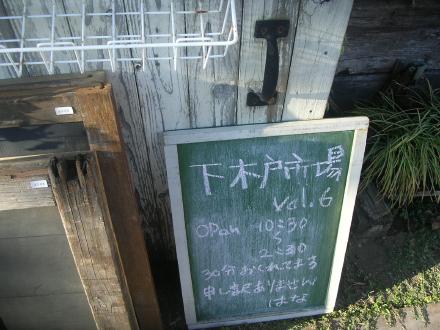 下木戸市場
Vol.6
OPan 10:30
〜
2:30
30分おくれてまる
申しまくありません
はな